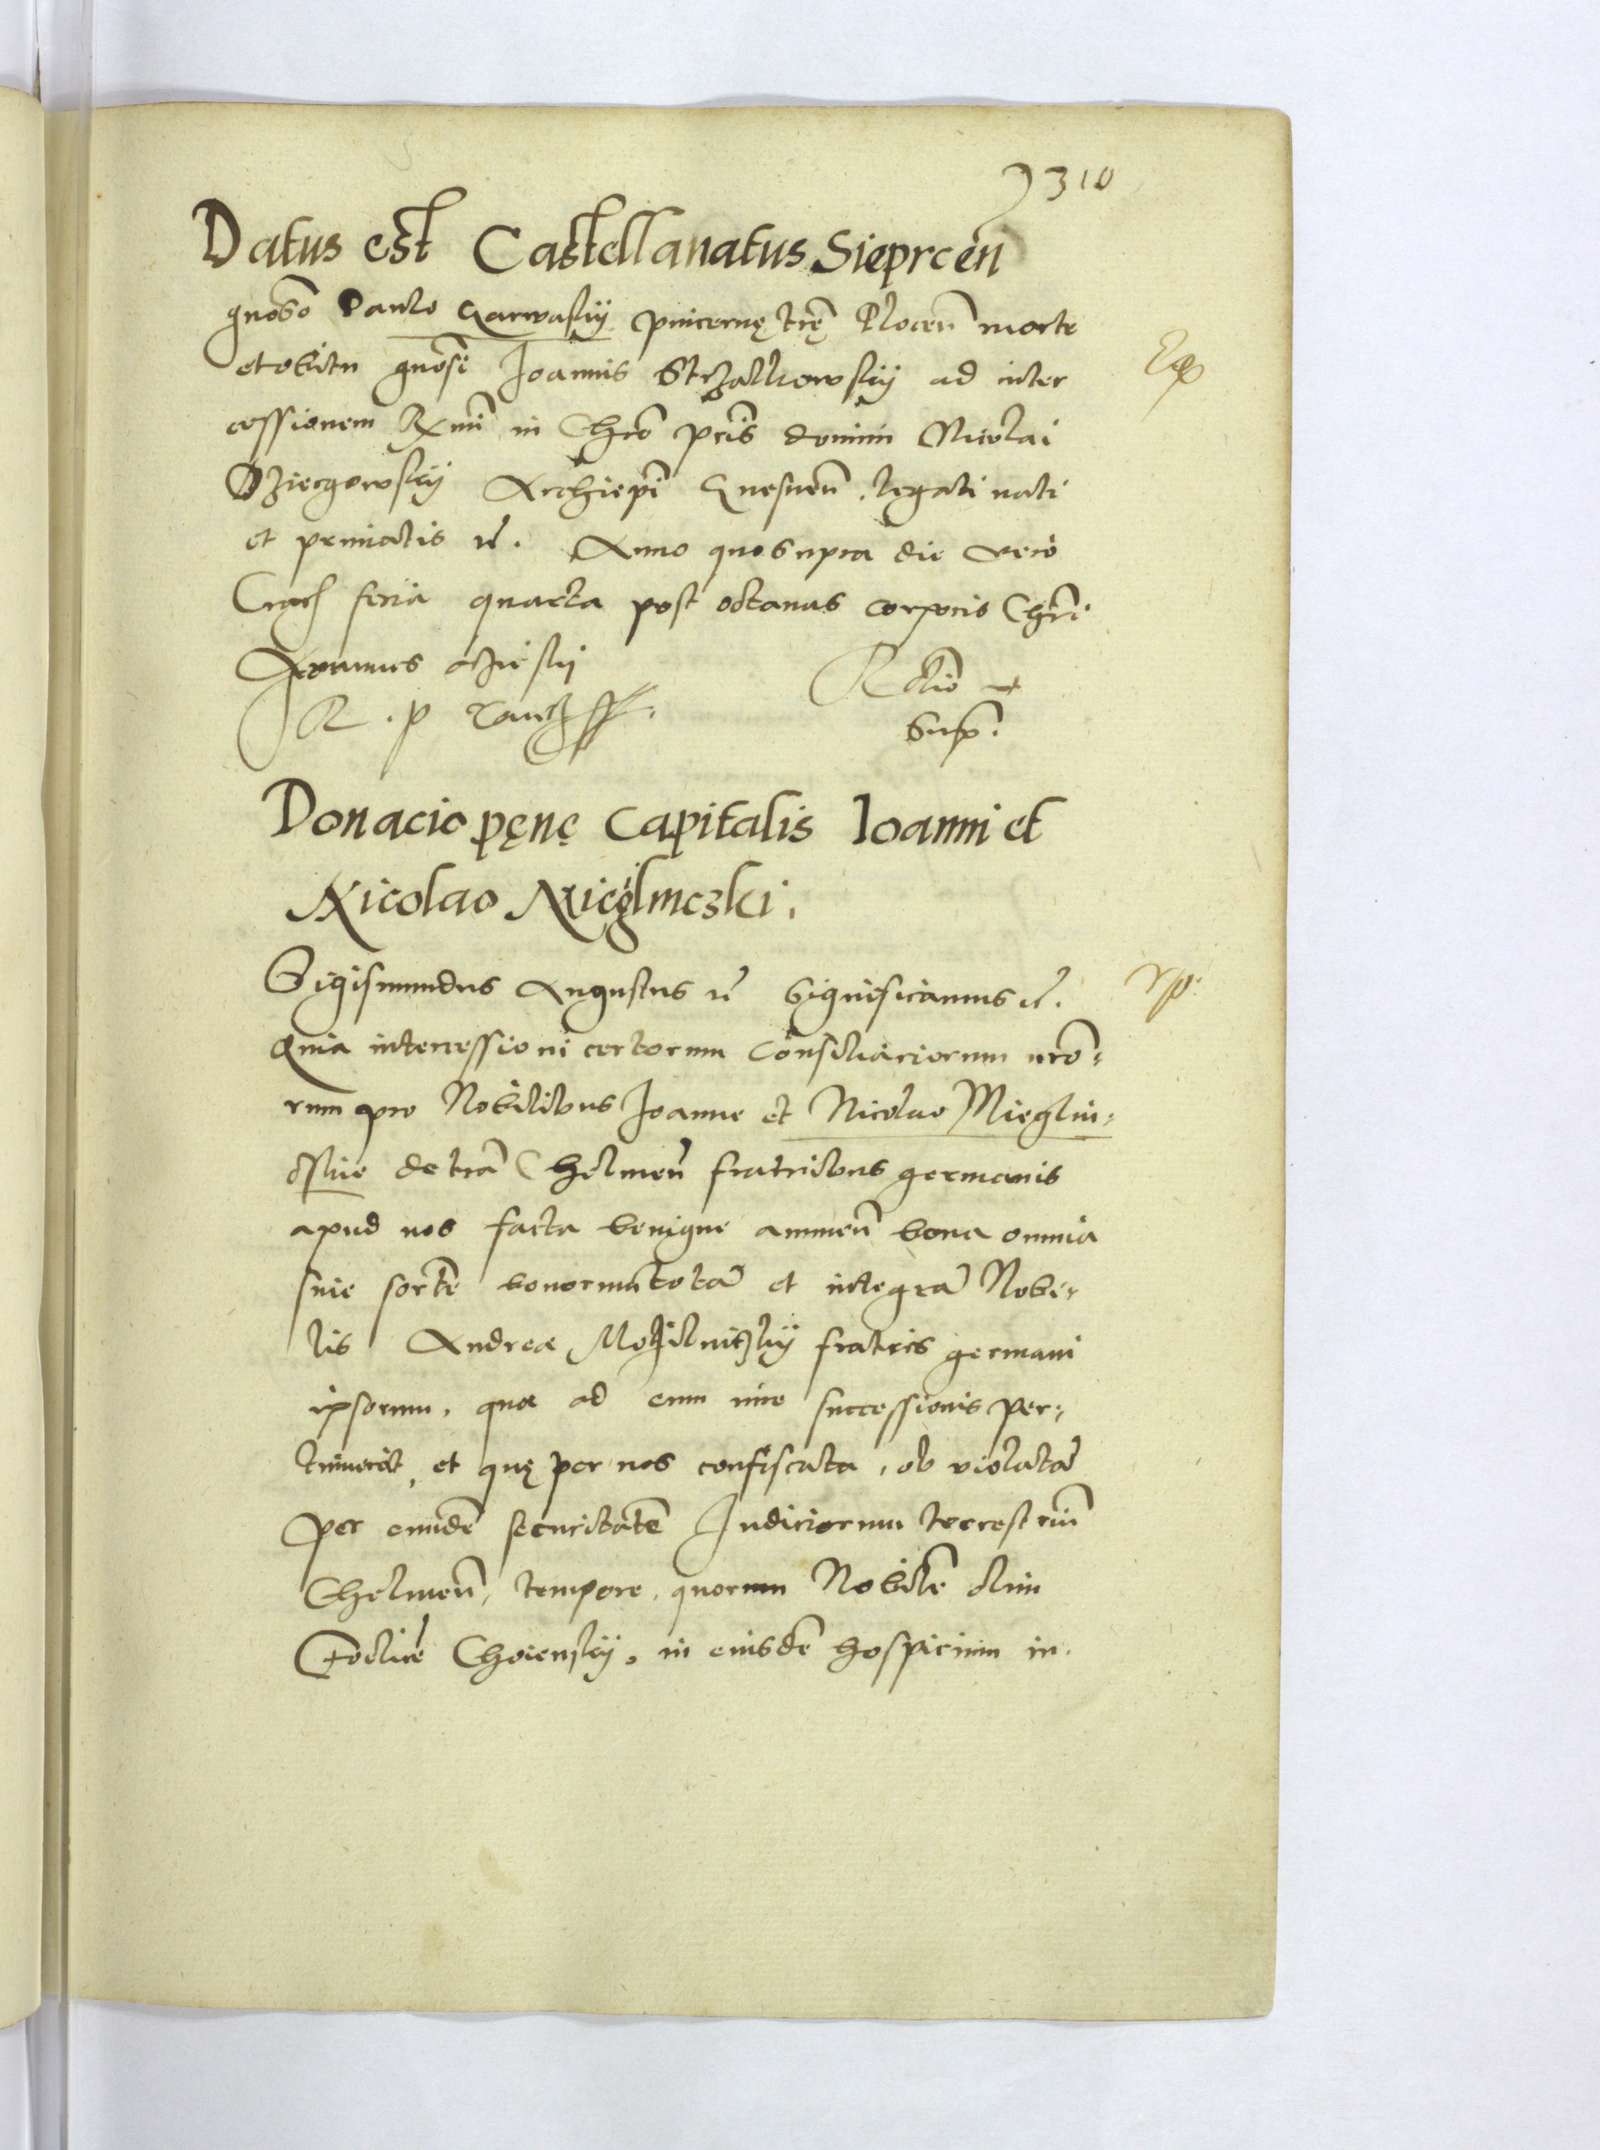 310
Datus est Castellanatus Sieprceñ
gnoso Paulo Garwaskij pincernę trę Ploceñ morte
et obitu gnosi Joannis Strzalkowskij ad inter
cessionem Rxmi in Chro pcris domini Nicolai
Dziergowskij Archiepi Gnesneñ, legati nati
et primatis rc. Anno quo supra die vero
Crac feria quarta post octauas corporis Chri
Joannes oczieskij
R. p
Rctio
Sup.
Donacio pęnę Capitalis Ioanni et
Nicolao Mieglinczki.
Sigismundus Augustus rc Significamus rc.
Quia intercessioni certorum Consiliariorum nro-
rum pro Nobilibus Joanne et Nicolao Mieglin-
de tra Chelmeñ fratribus germanis
apud nos facta benigne annueñ bona omnia
siue sorte bonorum tota et integra Nobi-
lis Andreæ fratris germani
ipsorum, quæ ad eum iure successionis per-
tinuerat, et quę per nos confiscata, ob violata
per eunde securitate Judiciorum terrestriu
Chelmeñ, tempore, quorum Nobile olim
Choienskij, in eiusde hospicium in-